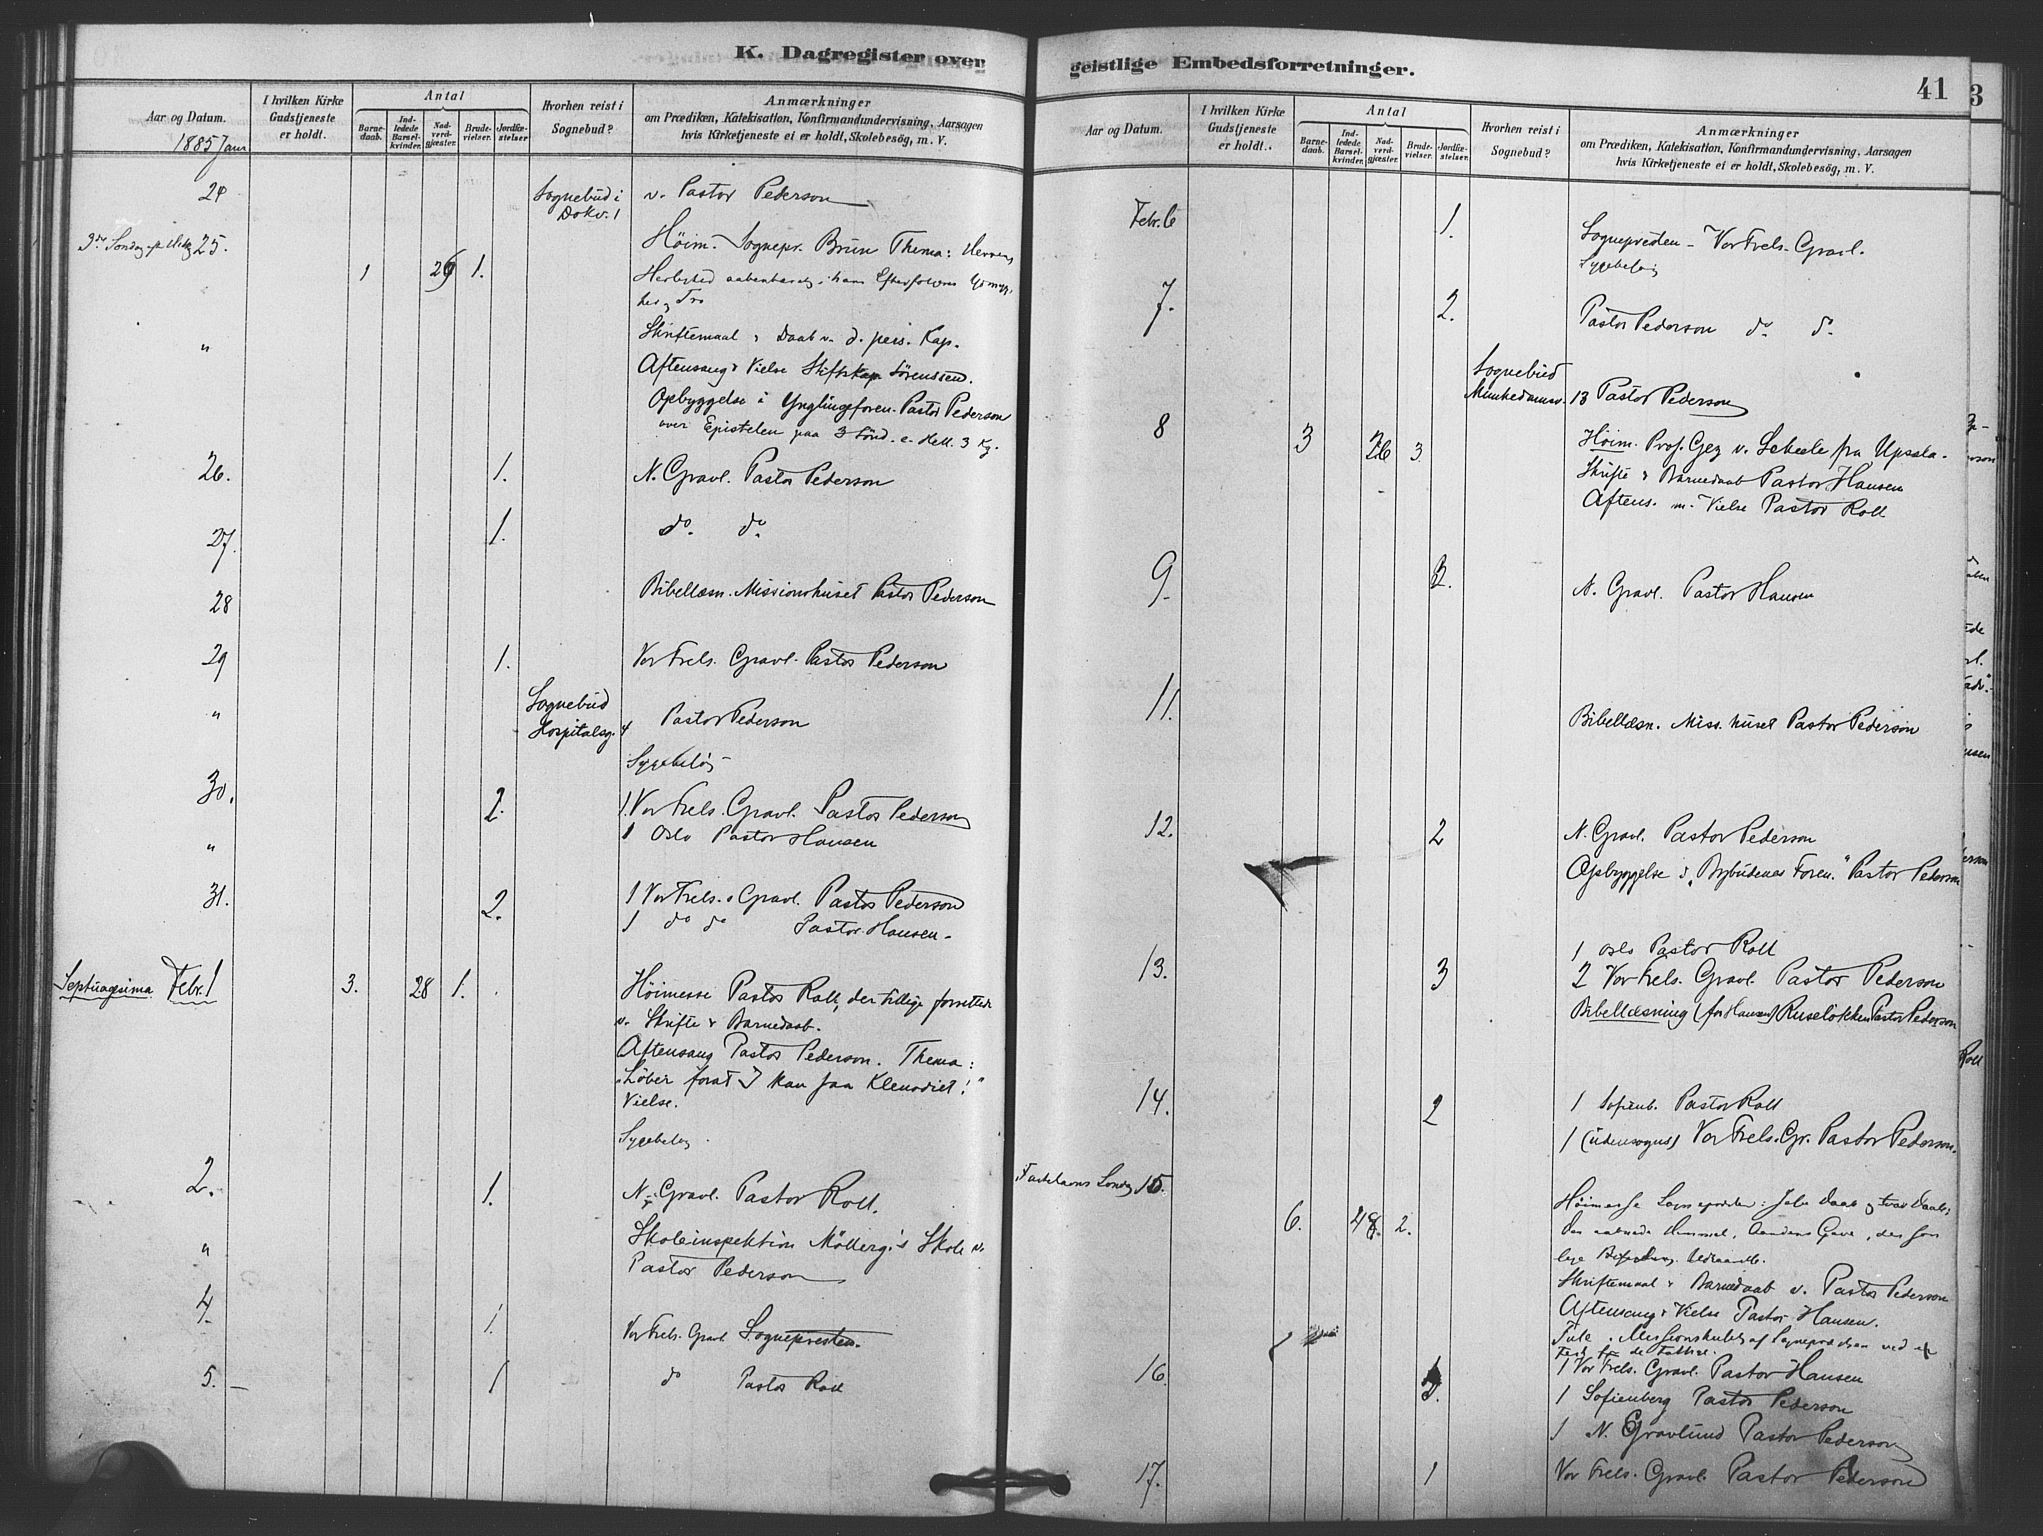 K. Dagregister over
Aar og Datum.
I hvilken Kirke Gudstjeneste er holdt.
Antal
Barne-daab.
Ind-ledede Barsel-kvinder.
Nad-verd-gjæster.
Brude-vielser.
Jordfæ-stelser
Hvorhen reist i Sognebud?
Anmærkninger
om Prædiken, Katekisation, Konfirmandundervisning, Aarsagen
hvis Kirketjeneste ei er holdt, Skolebesög, m. V.
1885 Janr
24 Sognebud i v. Pastor Pederson
Dokv. 1
25. Høim. Sognepr. Brun Thema: Herrens
1 29 1. Herlighed
Tro
" Skriftemaal & Daab v. d. pers. Kap.
Aftensang & Vielse Stiftskap Sörenssen.
Opbyggelse i Ynglingeforen. Pastor Pederson
over Epistelen paa 3 Sönd. e. Hell. 3 Kg.
26. 1. N. Gravl. Pastor Pederson
27. 1. do do
28 Bibellæsn. Missionshuset Pastor Pederson
29 1. Vor Frels. Gravl. Pastor Pederson
" Sognebud Hospitalsg. 4 Pastor Pederson
Sygebesög
30. 2. 1. Vor Frels. Gravl. Pastor Pederson
" 1 Oslo Pastor Hansen
31. 2. 1 Vor Frels. Gravl. Pastor Pederson
1 do do Pastor Hansen
Septuagesima Febr. 1 3. 28 1. Höimesse Pastor Roll, der tillige forrettede
v. Skrifte & Barnedaab.
Aftensang Pastor Pederson. Thema:
"Löber forat I kan faa Klenodiet!"
Vielse.
Sygebesög
2. 1. N. Gravl. Pastor Roll.
" Skoleinspektion Möllerg.s Skole v.
Pastor Pederson
4. 1. Vor Frels. Gravl Sognepresten.
5. 1 do Pastor Roll
geistlige Embedsforretninger.
41
Aar og Datum.
I hvilken Kirke Gudstjeneste er holdt.
Antal
Barne-daab.
Ind-ledede Barsel-kvinder.
Nad-verd-gjæster.
Brude-vielser.
Jordfæ-stelser.
Hvorhen reist i Sognebud?
Anmærkninger
om Prædiken, Katekisation, Konfirmandundervisning, Aarsagen
hvis Kirketjeneste ei er holdt, Skolebesög, m. V.
Febr. 6 1. Sognepresten - Vor Frels. Gravl.
Sygebesög
7. 2. Pastor Pederson do do
Sognebud Munkedamsv. 13 Pastor Pederson
8 3 26 3 Höim. Prof. v. Scheele fra Upsala.
Skrifte & Barnedaab Pastor Hansen
Aftens. m. Vielse Pastor Roll
9. N. Gravl. Pastor Hansen
11. Bibellæsn. Miss. huset Pastor Pederson
12. 2 N. Gravl. Pastor Pederson
Opbyggelse i "Bybudenes Foren." Pastor Pederson
13. 3 1 Oslo Pastor Roll
2 Vor Frels. Gravl. Pastor Pederson
Bibellæsning (for Hansen) Ruselökken Pastor Pederson
14. 2 1 Sofienb. Pastor Roll
1 (udensogns) Vor Frels. Gr. Pastor Pederson.
Fastelavns Sondag 15.
6. 48. 2. Höimesse Sognepresten: Jesu Daab og vor Daab;
den aabnede Himmel, Aandens Gave
Skriftemaal & Barnedaab v. Pastor Pederson
Aftensang & Vielse Pastor Hansen.
16. 1 Vor Frels. Gravl. Pastor Hansen
1 Sofienberg Pastor Pederson
1 N. Gravlund Pastor Pederson
17. 1 Vor Frels. Gravl. Pastor Pederson
3